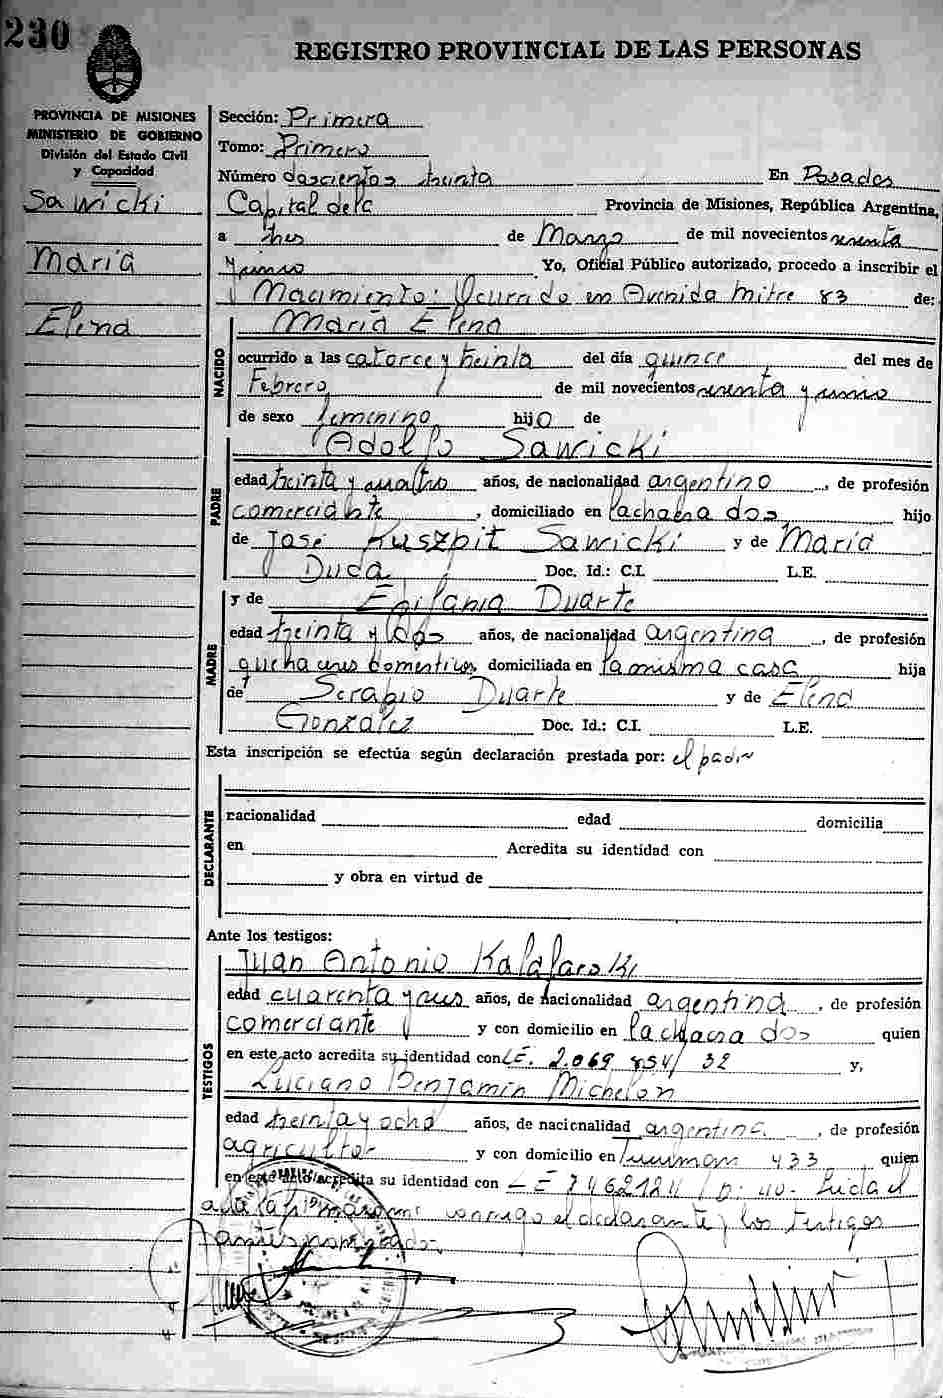 230
REGISTRO PROVINCIAL DE LAS PERSONAS
PROVINCIA DE MISIONES
MINISTERIO DE GOBIERNO
División del Estado Civil
y Capacidad
Sawicki
María
Elena
Sección: Primera
Tomo: Primero
Número doscientos treinta En Posadas
Capital de la Provincia de Misiones, República Argentina,
a tres de Marzo de mil novecientos sesenta
y uno Yo, Oficial Público autorizado, procedo a inscribir el
Nacimiento: Ocurrido en Avenida Mitre 83 de:
NACIDO
María Elena
ocurrido a las catorce y treinta del día quince del mes de
Febrero de mil novecientos sesenta y uno
de sexo femenino hijo de
PADRE
Adolfo Sawicki
edad treinta y cuatro años, de nacionalidad argentino, de profesión
comerciante, domiciliado en la chacra dos, hijo
de José Kuszpit Sawicki y de María
Duda Doc. Id.: C.I. L.E.
MADRE
y de Epifania Duarte
edad treinta y dos años, de nacionalidad argentina, de profesión
quehaceres domesticos domiciliada en la misma casa hija
de Serapio Duarte y de Elena
González Doc. Id.: C.I. L.E.
Esta inscripción se efectúa según declaración prestada por: el padre
DECLARANTE
nacionalidad edad domicilia
en Acredita su identidad con
y obra en virtud de
Ante los testigos:
TESTIGOS
Juan Antonio Kalafarski
edad cuarenta y seis años, de nacionalidad argentina, de profesión
comerciante y con domicilio en la chacra dos quien
en este acto acredita su identidad con L.E. 2.069 854/ 32 y,
Luciano Benjamin Michelon
edad treinta y ocho años, de nacionalidad argentina, de profesión
agricultor y con domicilio en Tucuman 433 quien
en este acto acredita su identidad con L E 7462124 / D. 40. Leida el
acta la firmaron conmigo el declarante y los testigos